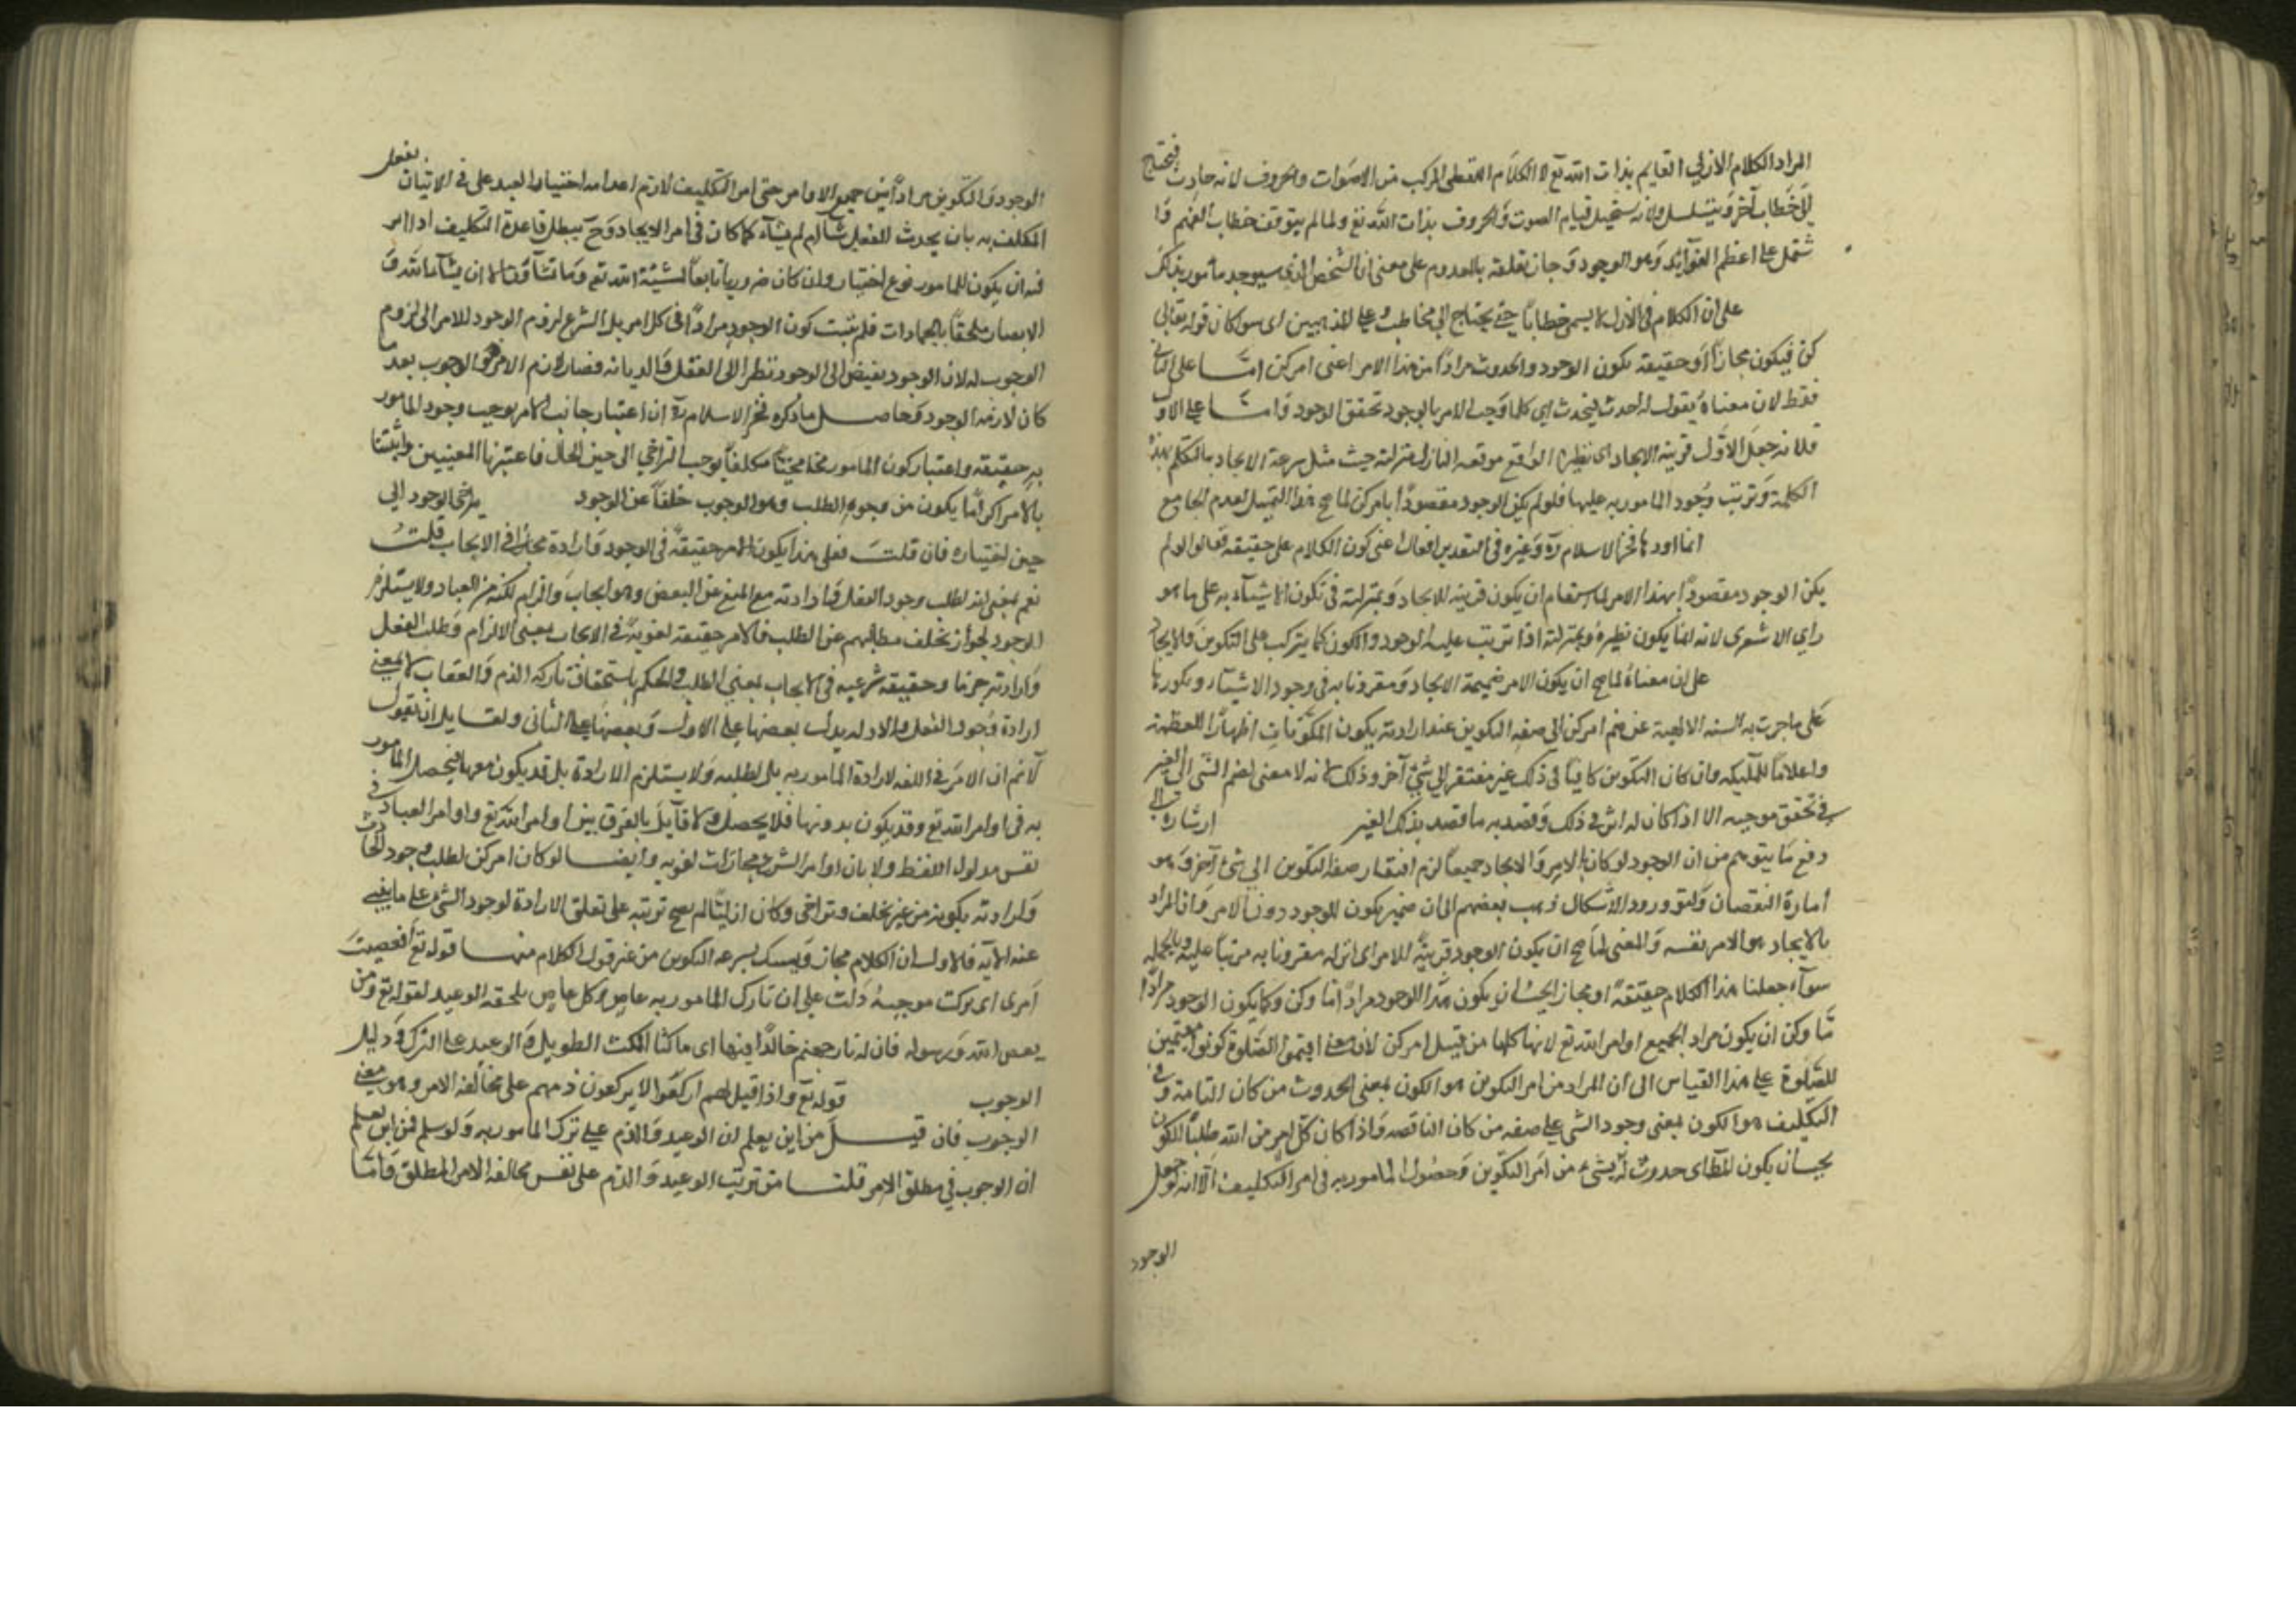 المراد الكلام الازلي القايم بذات الله تع لا الكلام اللفظى المركب من الاصوات والحروف لانه حادث فيحتاج
الى خطاب آخر ويتسلسل ولانه يستحيل قيام الصوت والحروف بذات الله تع ولما لم يتوقف خطاب الفهم و
شتمل على اعظم الفوآئد وهو الوجود و جاز تعلقه بالمعدوم على معنى ان الشخص الذى سيوجد مأمور بذلك
على ان الكلام فى الازل لا يسمى خطابا حتى يحتاج الى مخاطب وعلى المذهبين اى سوا كان قوله تعالى
كن فيكون مجازاً او حقيقة يكون الوجود والحدوث مراداً من هذا الامر اعنى امر كن امّا على الثانى
فقط لان معناه يقول له احدث فيحدث اى كلما وجد الامر بالوجود تحقق الوجود وامّا على الاول
فلانه جعل الاوّل قرينة الايجاد اى نظيرا الواقع موقعه النازل منزلته حيث مثل سرعة الايجاد بالتكلم بهذه
الكلمة وترتب وجود المامور به عليها فلو لم يكن الوجود مقصوداً بامر كن لما صح هذا التمثيل لعدم الجامع
انما اورد ها فخر الاسلام ره وغيره فى التقدير اعنى كون الكلام على حقيقته فقالوا لو لم
يكن الوجود مقصوداً بهذا الامر لما استقام ان يكون قرينة للايجاد وبمنزلته فى تكون الاشيآء به على ما هو
راى الاشعرى لانه انما يكون نظيره وبمنزلته اذا ترتب عليه الوجود والكون كما يترتب على التكوين والايجاد
على ان معناه لما صح ان يكون الامر ضميمة الايجاد ومقرونا به فى وجود الاشيآء
على ما جرت به السنه الالهية عن ضم امر كن الى صفة التكوين عند ارادته يكون المكونات اظهاراً للعظمة
واعلاماً للمليكة وان كان التكوين كافيا فى ذلك غير مفتقر الى شئ آخر وذلك لانه لا معنى لضم الشى الى الغير
فى تحقق موجبه الا اذا كان له اثر فى ذلك وقصد به ما قصد بذلك الغير ارشارة الى
دفع ما يتوهم من ان الوجود لو كان بالامر والايجاد جميعاً لزم افتقار صفة التكوين الى شئ آخر وهو
أمارة النقصان ولقوة ورود الاشكال ذهب بعضهم الى ان ضمير يكون للوجود دون الامر وان المراد
بالايجاد هو الامر نفسه والمعنى لما صح ان يكون الوجود قرينة للامر اى انزله مقرونا به مرتباً عليه وبالجمله
سوآء جعلنا هذا الكلام حقيقة او مجازا يجب ان يكون هذا الوجود مراداً امّا وكن وكما يكون الوجود مراداً
مّا وكن ان يكون مراد الجميع اوامر الله تع لانها كلها من قبيل امر كن لان معنى اقيموا الصلوة كونوا مقيمين
للصلوة على هذا القياس الى ان المراد من امر التكوين هو الكون بمعنى الحدوث من كان التامة وفى
التكليف هو الكون بمعنى وجود الشى على صفه من كان الناقصه واذا كان كل امر من الله طلباً للكون
يجب ان يكون اى حدوث من امر التكوين وحصول المامور به فى امر التكليف الا انه لو جعل
الوجود
الوجود والتكوين مراداً من جميع الاوامر حتى امر التكليف لازم اعدام اختيار العبد على فى الاتيان بفعل
المكلف به بان يحدث الفعل شآء ام لم يشآء كما كان فى امر الايجاد وح يبطل قاعدة التكليف
فيه ان يكون للمامور نوع اختيار وان كان ضروريا تابعاً لمشيئة الله تع وما تشآؤن الا ان يشآء الله و
الا يصار ملحقاً بالجمادات فلم يثبت كون الوجود مراداً فى كل امر بل الشرع لزوم الوجود للامر الى لزوم
الوجوب له لان الوجود يفيض الى الوجود نظرا الى العقل والديانه فصار لازم الامر هو الوجوب بعد ما
كان لازمه الوجود وحاصل ما ذكره فخر الاسلام ره ان اعتبار جانب الامر يوجب وجود المامور
به حقيقة واعتبار كون المامور مختاراً مكلفاً يوجب التراخي الى حين فاعتبرنا المعنيين واثبتنا
بالامر اكد ما يكون من وجوه الطلب وهو الوجوب خلفاً عن الوجود يتراخى الوجود الى
حين اختياره فان قلت فعلى هذا يكون الامر حقيقة فى الوجود وارادة مجازا فى الايجاب قلت
نعم بمعنى انه لطلب وجود الفعل وارادته مع المنع عن النقيض وهو ايجاب والزام لكنه من العباد ولا يستلزم
الوجود لجواز تخلف مطالبهم عن الطلب فالامر حقيقة لغوية فى الايجاب بمعنى الالزام وطلب الفعل
وارادته جزما وحقيقة شرعيه فى الايجاب بمعنى الطلب والحكم باستحقاق تاركه الذم والعقاب لا بمعنى
ارادة وجود الفعل والادله يدل بعضها على الاول وبعضها على الثانى ولقايل ان يقول
لا نم ان الامر فى اللغه لارادة المامور به بل لطلبه ولا يستلزم الارادة بل قد يكون معها فيحصل المامور
به فى اوامر الله تع وقد يكون بدونها فلا يحصل ولا قآيل بالفرق بين اوامر الله تع واوامر العباد فى
نفس مدلول اللفظ ولا بان اوامر الشرع مجازات لغويه وايضا لو كان امر كن لطلب وجود الحادث
وارادته يكونه من غير تخلف وتراخى وكان ازليّاً لم يصح ترتبه على تعلق الارادة لوجود الشئ على ما ينبئ
عنه الآيه فالاولى ان الكلام مجاز وتمثيل لسرعة التكوين من غير قول الكلام منها قوله تع افعصيت
امرى اى تركت موجبه دلت على ان تارك المامور به عاص وكل عاص يلحقه الوعيد لقوله تع ومن
يعص الله ورسوله فان له نار جهنم خالداً فيها اى ماكثا المكث الطويل والوعيد على الترك دليل
الوجوب قوله تع واذا قيل لهم اركعوا لا يركعون ذمهم على مخالفة الامر وهو معنى
الوجوب فان قيل من اين يعلم ان الوعيد والذم على ترك المامور به ولو سلم فمن اين يعلم
ان الوجوب فى مطلق الامر قلنا من ترتيب الوعيد والذم على نفس مخالفة الامر المطلق وامّا